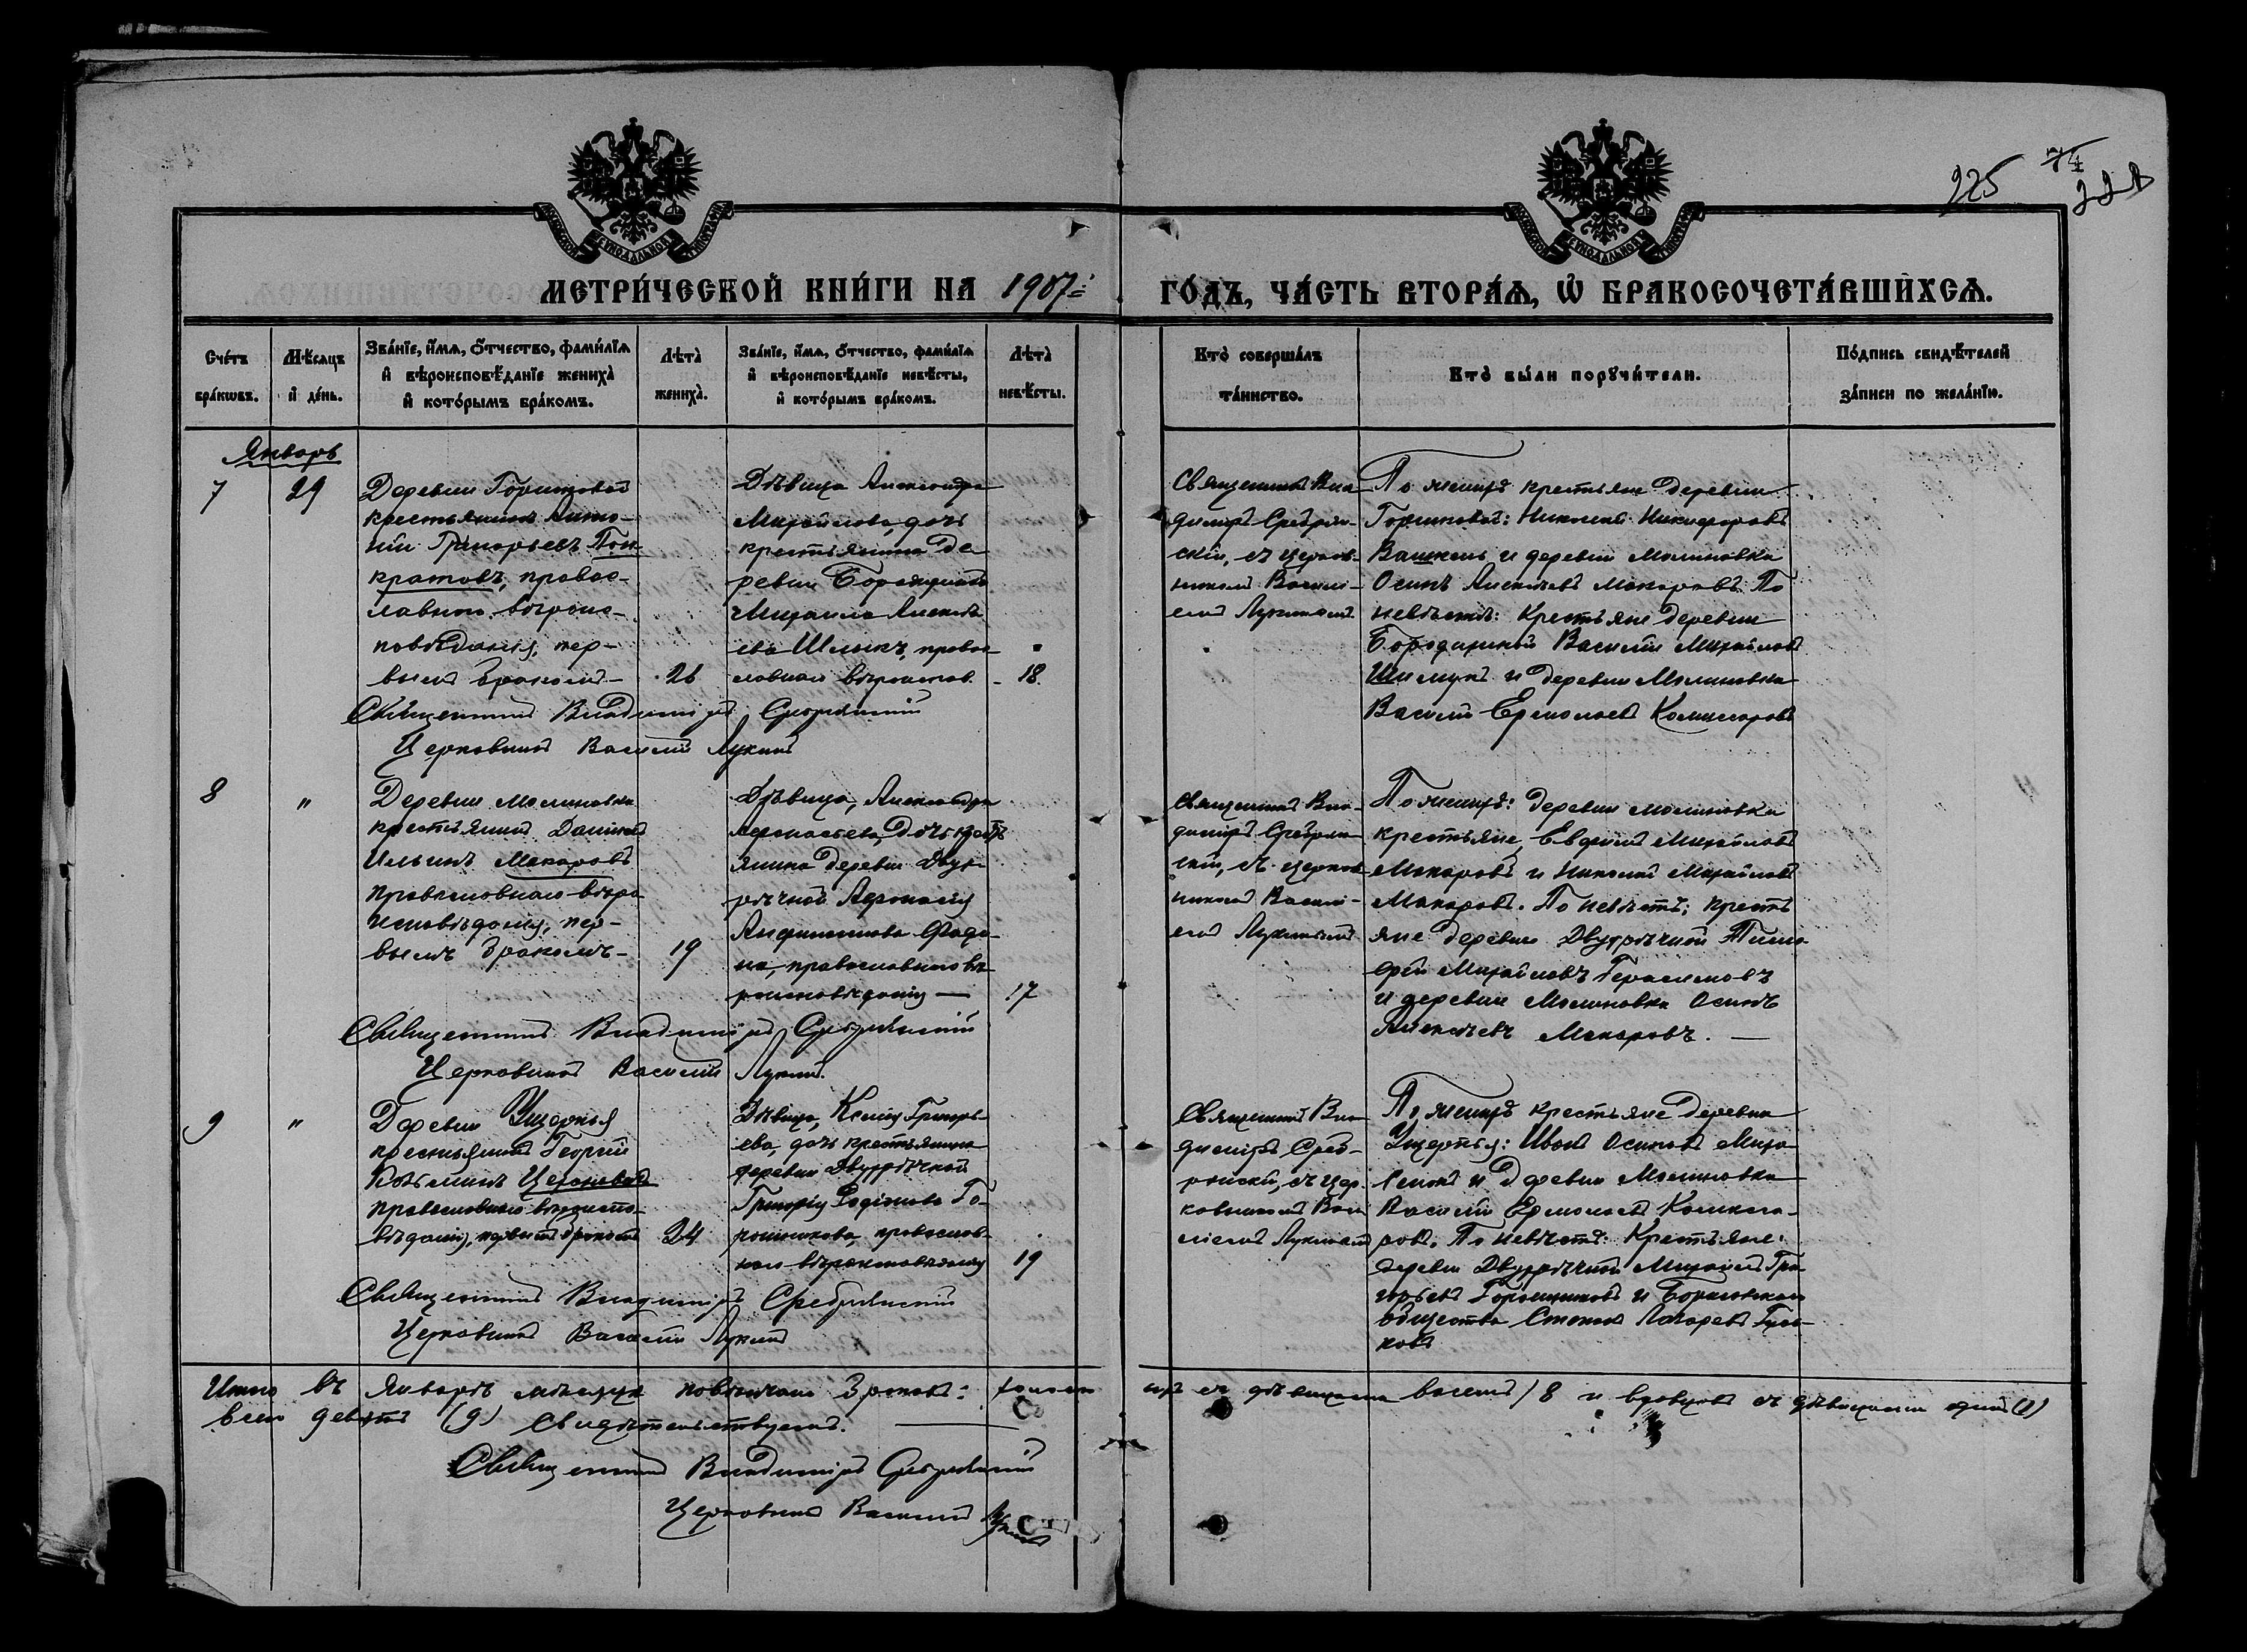 225 74
МЕТРИ́ЧЕСКОЙ КНИ́ГИ НА 1907 г. ГО́ДЪ, ЧА́СТЬ ВТОРА́Ѧ, Ѽ БРАКОСОЧЕТА́ВШИХСѦ.
Сче́тъ бра́кѡвъ.
Мѣ́сяцъ и҆ де́нь.
Зва́нїе, и҆́мѧ, ѻ҆́тчество, фами́лїѧ и҆ вѣроисповѣ́данїе жениха̀ и҆ кото́рымъ бра́комъ.
Лѣта̀ жениха̀.
Зва́нїе, и҆́мѧ, ѻ҆́тчество, фами́лїѧ и҆ вѣроисповѣ́данїе невѣ́сты, и҆ кото́рымъ бра́комъ.
Лѣта̀ невѣ́сты.
Кто̀ соверша́лъ та́инство.
Кто̀ бы́ли порꙋчи́тели.
По́дпись свидѣ́телей за́писи по жела́нїю.
Январь
7
29
Деревни
крестьянинъ Анто-
ній Григорьевъ Пон-
кратовъ, правос-
лавнаго вѣроис-
повѣданія, пер-
вымъ бракомъ
26
Дѣвица Александра
Михайлова, дочь
крестьянина де-
ревни
Михаила Алексѣ-
ева Шлыкъ, правос-
лавнаго вѣроисповѣд.
18.
Священникъ Вла-
димиръ Сребрян-
скій, съ церков-
никомъ Васи-
емъ Лукинымъ
По женихѣ крестьяне деревни
Николай Никифоровъ
Вашкень и деревни Малиновка
Осипъ Алексѣевъ Макаровъ. По
невѣстѣ: Крестьяне деревни
Василій Михайловъ
и деревни Малиновка
Василій Ермолаевъ Комисаровъ
Священникъ Владиміръ Сребрянскій
Церковникъ Василій Лукинъ
8
"
Деревни Малиновка
крестьянинъ Данiилъ
Ильинъ Макаровъ
православнаго вѣро
исповѣданія, пер-
вымъ бракомъ
19
Дѣвица, Александра
Афанасьева, дочь крестъ
янина деревни Двух-
рѣчной Афанасія
православнаго вѣ-
роисповѣданія —
17
Священникъ Вла-
димиръ Сребрян-
скій, съ церков-
никомъ Васи-
емъ Лукинымъ
По женихѣ: деревни Малиновка
крестьяне, Евдокимъ Михайловъ
Макаровъ и Николай Михайловъ
Макаровъ. По невѣстѣ; кресть
яне деревни Двухрѣчной Тимо
фей Михайловъ Герасимовъ
и деревни Малиновка Осипъ
Алексѣевъ Макаровъ. —
Священникъ Владиміръ Сребрянскій
Церковникъ Василій Лукинъ.
9
"
Деревни Ущерпья
крестьянинъ Георгій
Козьминъ
православнаго вѣроиспо-
вѣданія, первымъ бракомъ
24
Дѣвица, Ксенія Григорь-
ева, дочь крестьянина
деревни Двухрѣчной
Григорія Родіонова Го-
рошникова, православ-
наго вѣроисповѣданія
19
Священникъ Вла
димиръ Среб-
рянскій, съ цер-
ковникомъ Васи
емъ Лукинымъ
По женихѣ крестьяне деревни
Ущерпья: Иванъ Осиповъ
и деревни Малиновка
Василій Ермолаевъ Комиса-
ровъ. По невѣстѣ: Крестьяне:
деревни Двухрѣчной Михаилъ Гри-
горьевъ Горошниковъ и
общества Степанъ Лазаревъ Гусь-
ковъ
Священникъ Владиміръ Сребрянскій
Церковникъ Василій Лукинъ
Итого въ Январѣ мѣсяцѣ повѣнчано браковъ: холосты съ дѣвицами восемь (8 и вдовцовъ съ дѣвицами одинъ (1)
всего девять (9) Свидѣтельствуемъ.
Священникъ Владиміръ Сребрянскій
Церковникъ Василій Лукинъ